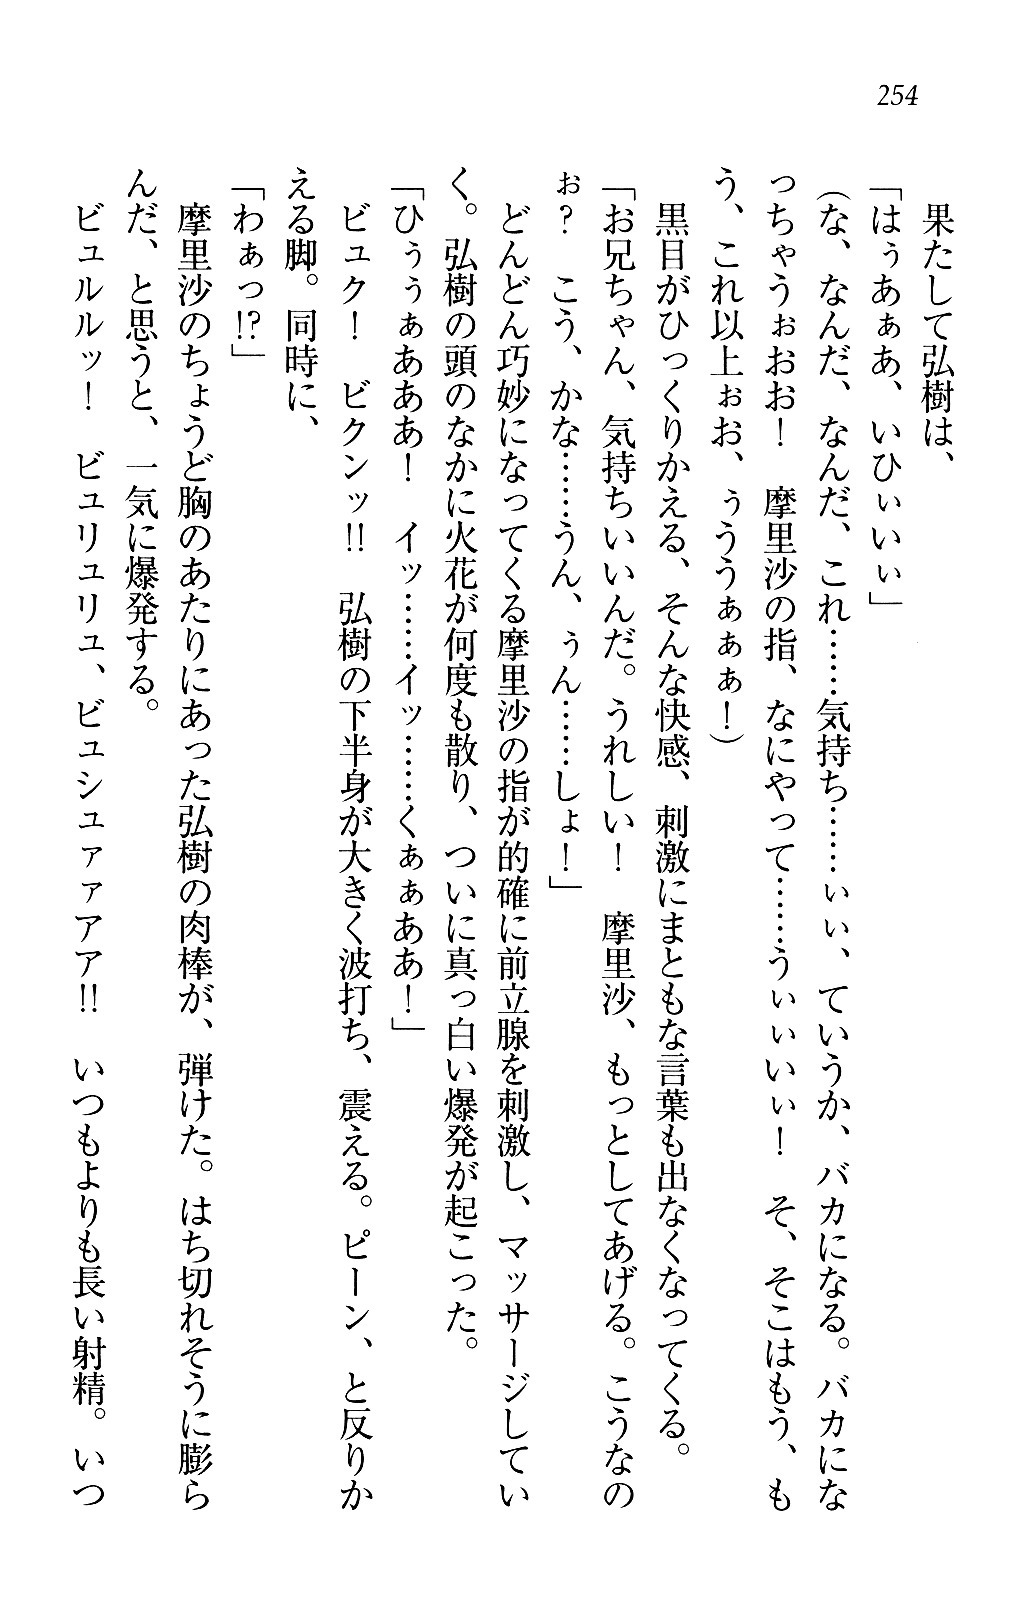 254
果たして弘樹は、
「はぅあぁあ、いひぃいぃ」
(な、なんだ、なんだ、これ……気持ち……ぃぃ、ていうか、バカになる。バカにな
っちゃうぉおお！　摩里沙の指、なにやって……うぃぃいぃ！　そ、そこはもう、も
う、これ以上ぉお、ぅううぁぁぁ！)
黒目がひっくりかえる、そんな快感、刺激にまともな言葉も出なくなってくる。
「お兄ちゃん、気持ちいいんだ。うれしい！　摩里沙、もっとしてあげる。こうなの
ぉ？　こう、かな……うん、ぅん……しょ！」
どんどん巧妙になってくる摩里沙の指が的確に前立腺を刺激し、マッサージしてい
く。弘樹の頭のなかに火花が何度も散り、ついに真っ白い爆発が起こった。
「ひぅぅぁあああ！　イッ……イッ……くぁぁああ！」
ビュク！　ビクンッ!!　弘樹の下半身が大きく波打ち、震える。ピーン、と反りか
える脚。同時に、
「わぁっ!?」
摩里沙のちょうど胸のあたりにあった弘樹の肉棒が、弾けた。はち切れそうに膨ら
んだ、と思うと、一気に爆発する。
ビュルルッ！　ビュリュリュ、ビュシュァァアア!!　いつもよりも長い射精。いつ